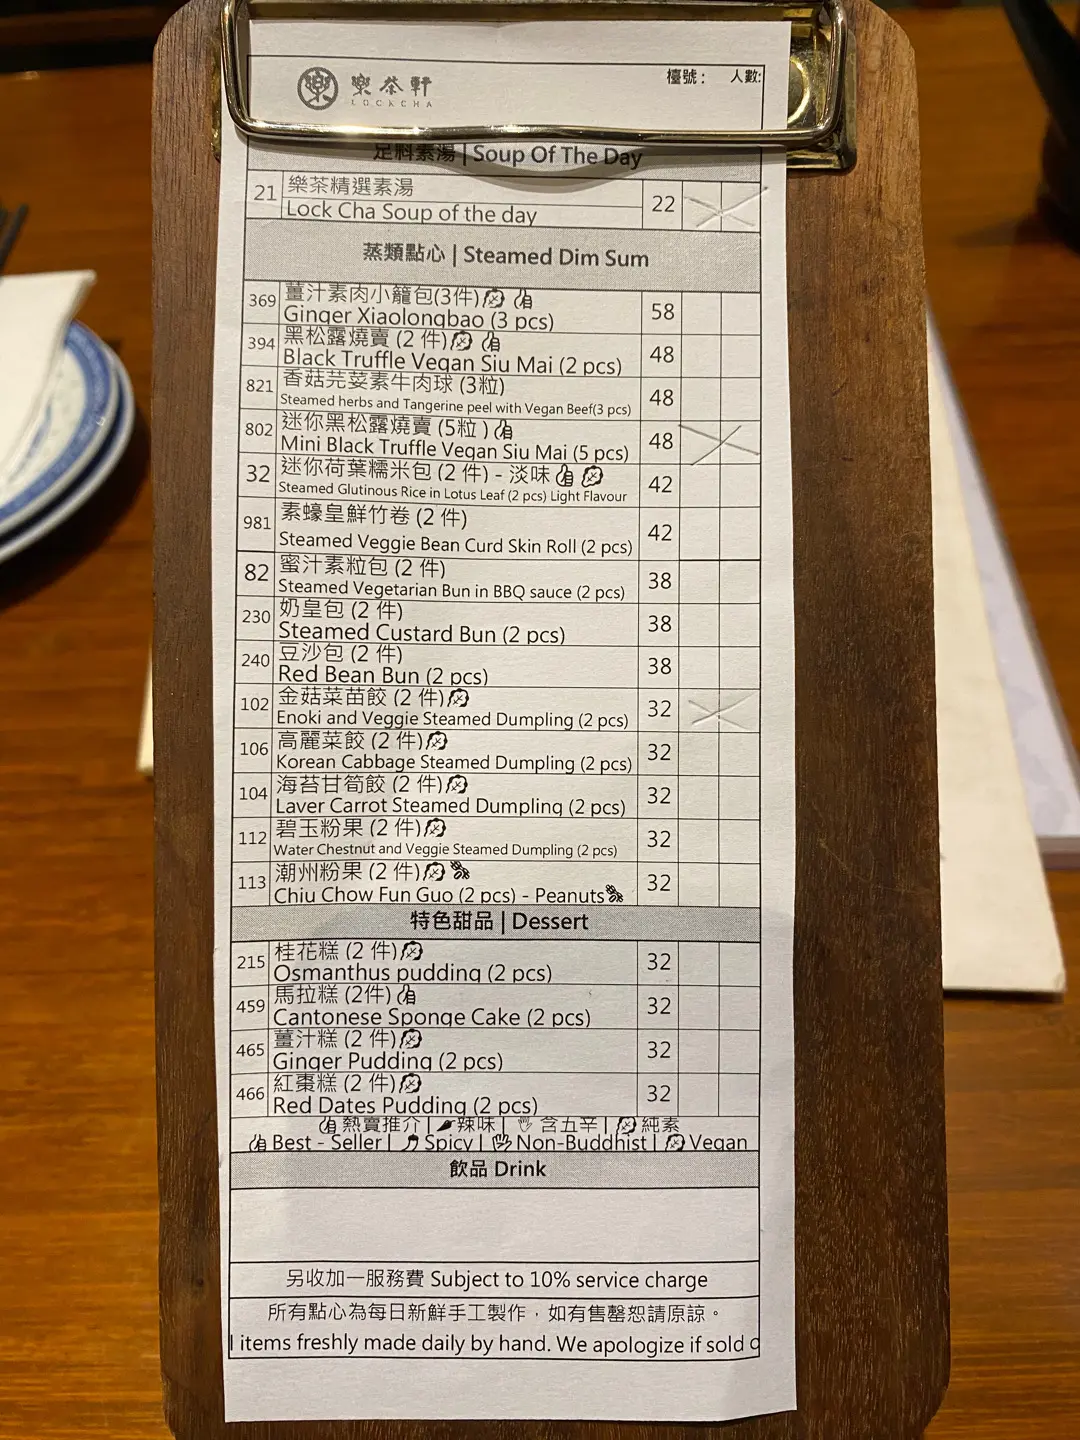 樂茶軒
LOCKCHA
檯號： 人數:
足料素湯 | Soup Of The Day
21 樂茶精選素湯 22
Lock Cha Soup of the day
蒸類點心 | Steamed Dim Sum
369 薑汁素肉小籠包(3件) 58
Ginger Xiaolongbao (3 pcs)
394 黑松露燒賣 (2 件) 48
Black Truffle Vegan Siu Mai (2 pcs)
821 香菇芫荽素牛肉球 (3粒) 48
Steamed herbs and Tangerine peel with Vegan Beef(3 pcs)
802 迷你黑松露燒賣 (5粒 ) 48
Mini Black Truffle Vegan Siu Mai (5 pcs)
32 迷你荷葉糯米包 (2 件) - 淡味 42
Steamed Glutinous Rice in Lotus Leaf (2 pcs) Light Flavour
981 素蠔皇鮮竹卷 (2 件) 42
Steamed Veggie Bean Curd Skin Roll (2 pcs)
82 蜜汁素粒包 (2 件) 38
Steamed Vegetarian Bun in BBQ sauce (2 pcs)
230 奶皇包 (2 件) 38
Steamed Custard Bun (2 pcs)
240 豆沙包 (2 件) 38
Red Bean Bun (2 pcs)
102 金菇菜苗餃 (2 件) 32
Enoki and Veggie Steamed Dumpling (2 pcs)
106 高麗菜餃 (2 件) 32
Korean Cabbage Steamed Dumpling (2 pcs)
104 海苔甘筍餃 (2 件) 32
Laver Carrot Steamed Dumpling (2 pcs)
112 碧玉粉果 (2 件) 32
Water Chestnut and Veggie Steamed Dumpling (2 pcs)
113 潮州粉果 (2 件) 32
Chiu Chow Fun Guo (2 pcs) - Peanuts
特色甜品 | Dessert
215 桂花糕 (2 件) 32
Osmanthus pudding (2 pcs)
459 馬拉糕 (2件) 32
Cantonese Sponge Cake (2 pcs)
465 薑汁糕 (2 件) 32
Ginger Pudding (2 pcs)
466 紅棗糕 (2 件) 32
Red Dates Pudding (2 pcs)
熱賣推介 | 辣味 | 含五辛 | 純素
Best - Seller | Spicy | Non-Buddhist | Vegan
飲品 Drink
另收加一服務費 Subject to 10% service charge
所有點心為每日新鮮手工製作，如有售罄恕請原諒。
l items freshly made daily by hand. We apologize if sold